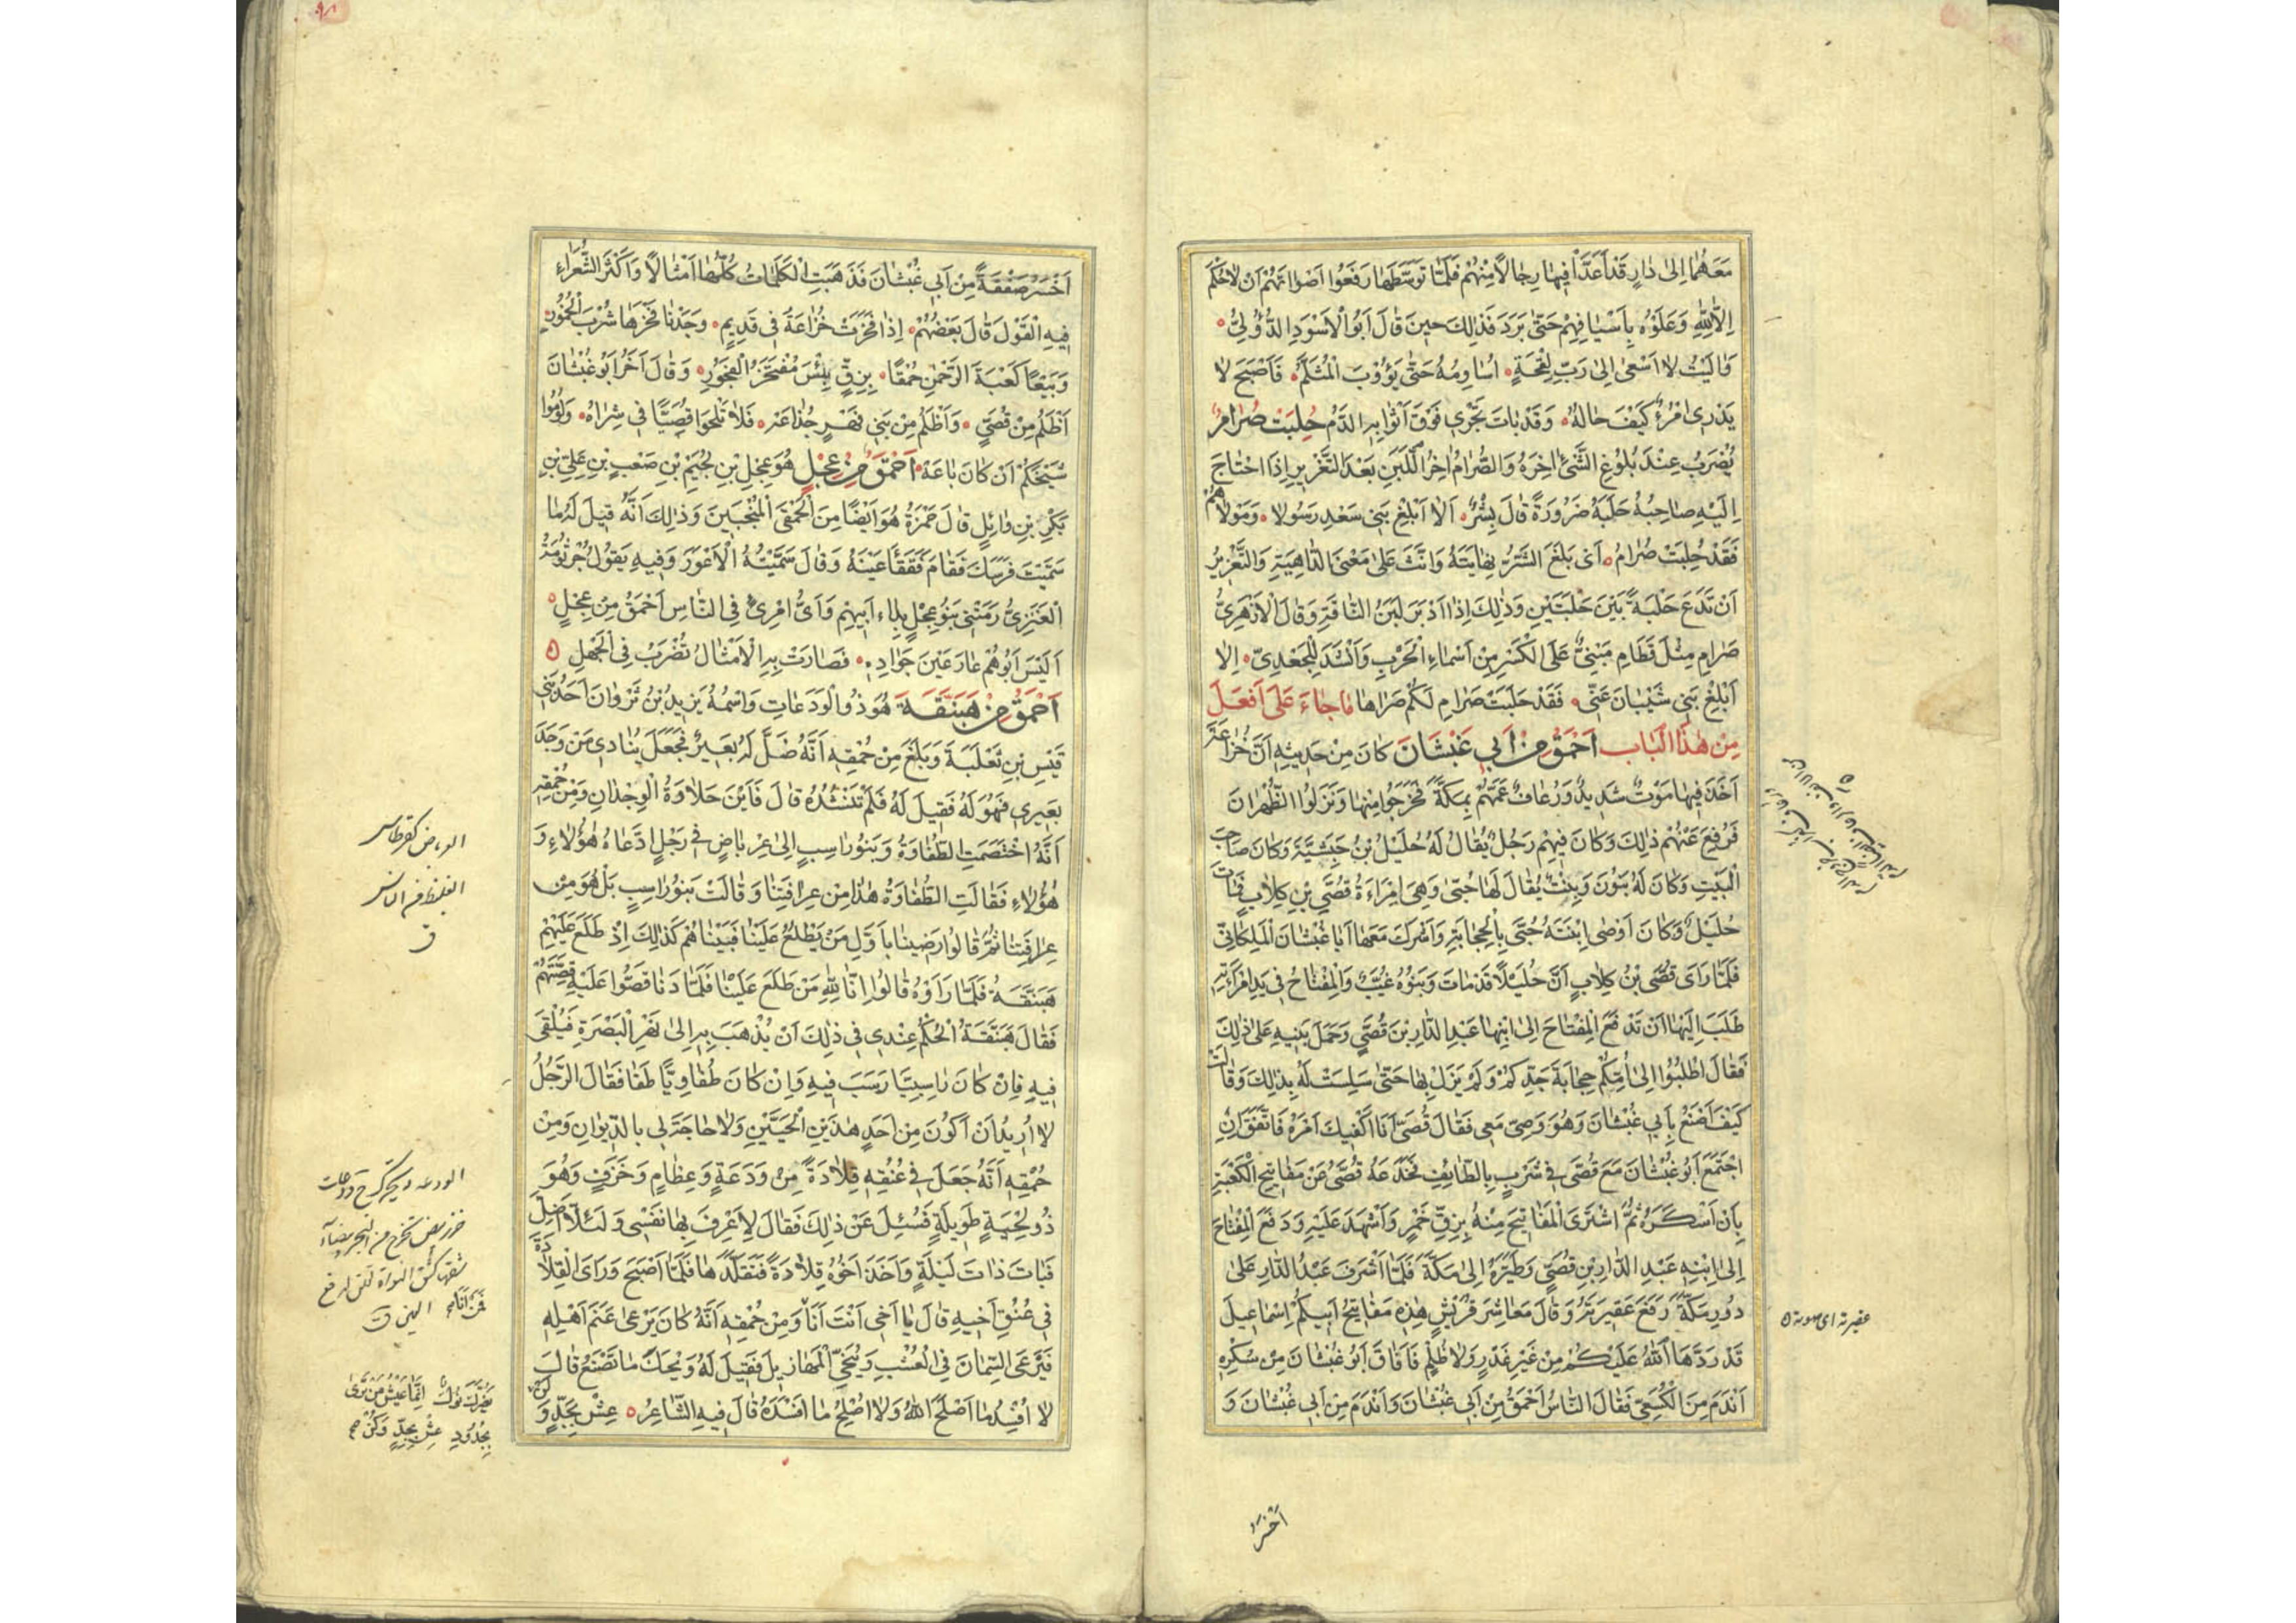 مَعَهُمَا إِلىٰ دَارٍ قَدْ أَعَدَّ فِيهَا رِجَالًا مِنْهُمْ فَلَمَّا تَوَسَّطَهَا رَفَعُوا أَصْوَاتَهُمْ أَنْ لَا حُكْمَ
اِلَّا لِلّٰهِ وَعَلَوْهُ بِأَسْيَافِهِمْ حَتَّى بَرَدَ فَذٰلِكَ حِينَ قَالَ أَبُو الْأَسْوَدِ الدُّؤَلِيُّ
وَاٰلَيْتُ لَا اَسْعىٰ اِلىٰ رَبِّ لِقْحَةٍ اُسَاوِمُهُ حَتَّى يَؤُوبَ الْمُثَلَّمُ فَاَصْبَحَ لَا
يَدْرِى امْرُءٌ كَيْفَ حَالُهُ وَقَدْ بَاتَ يَجْرِي فَوْقَ اَثْوَابِهِ الدَّمُ حُلِبَتْ صُرَامُ
يُضْرَبُ عِنْدَ بُلُوغِ الشَّئِ اٰخِرَهُ وَالصُّرَامُ اٰخِرُ اللَّبَنِ بَعْدَ التَّغْرِيزِ اِذَا احْتَاجَ
اِلَيْهِ صَاحِبُهُ حَلَبَهُ ضَرُورَةً قَالَ بِشْرٌ اَلَا اَبْلِغْ بَنِي سَعْدٍ رَسُولًا وَمَوْلَاهُمْ
فَقَدْ حُلِبَتْ صُرَامُ اَىْ بَلَغَ الشَّرُّ نِهَايَتَهُ وَاَنَّثَ عَلىٰ مَعْنَى الدَّاهِيَةِ وَالتَّغْرِيزُ
اَنْ تَدَعَ حَلْبَةً بَيْنَ حَلْبَتَيْنِ وَذٰلِكَ اِذَا اَدْبَرَ لَبَنُ النَّاقَةِ وَقَالَ الْاَزْهَرِىُّ
صَرَامِ مِثْلَ قَطَامِ مَبْنِىٌّ عَلَى الْكَسْرِ مِنْ اَسْمَاءِ الْحَرْبِ وَاَنْشَدَ لِلْجَعْدِيِّ اَلَا
اَبْلِغْ بَنِي شَيْبَانَ عَنِّى فَقَدْ حَلَبَتْ صَرَامِ لَكُمْ صَرَاهَا مَا جَاءَ عَلىٰ اَفْعَلَ
مِنْ هٰذَا الْبَابِ اَحْمَقُ مِنْ اَبِي غَبْشَانَ كَانَ مِنْ حَدِيثِهِ اَنَّ خُزَاعَةَ
اَخَذَ فِيهَا مَوْتٌ شَدِيدٌ وَرُعَافٌ عَمَّهُمْ بِمَكَّةَ فَخَرَجُوا مِنْهَا وَنَزَلُوا الظَّهْرَانَ
فَرُفِعَ عَنْهُمْ ذٰلِكَ وَكَانَ فِيهِمْ رَجُلٌ يُقَالُ لَهُ حُلَيْلُ بْنُ حَبَشِيَّةَ وَكَانَ صَاحِبَ
الْبَيْتِ وَكَانَ لَهُ بَنُونَ وَبِنْتٌ يُقَالُ لَهَا حُبَّى وَهِيَ امْرَاَةُ قُصَيِّ بْنِ كِلَابٍ فَمَاتَ
حُلَيْلٌ وَكَانَ اَوْصَى ابْنَتَهُ حُبَّى بِالْحِجَابَةِ وَاَشْرَكَ مَعَهَا اَبَا غُبْشَانَ الْمَلِكَانِيَّ
فَلَمَّا رَاَى قُصَيُّ بْنُ كِلَابٍ اَنَّ حُلَيْلًا قَدْ مَاتَ وَبَنُوهُ غُيَّبٌ وَالْمِفْتَاحُ فِي يَدِ امْرَاَتِهِ
طَلَبَ اِلَيْهَا اَنْ تَدْفَعَ الْمِفْتَاحَ اِلىٰ ابْنِهَا عَبْدِ الدَّارِ بْنِ قُصَيٍّ وَحَمَلَ بَنِيهِ عَلىٰ ذٰلِكَ
فَقَالَ اطْلُبُوا اِلىٰ اُمِّكُمْ حِجَابَةَ جَدِّكُمْ وَلَمْ يَزَلْ بِهَا حَتَّى سَلِسَتْ لَهُ بِذٰلِكَ وَقَالَتْ
كَيْفَ اَصْنَعُ بِاَبِي غُبْشَانَ وَهُوَ وَصِيٌّ مَعِي فَقَالَ قُصَيٌّ اَنَا اَكْفِيكَ اَمْرَهُ فَاتَّفَقَ اَنِ
اجْتَمَعَ اَبُو غُبْشَانَ مَعَ قُصَيٍّ فِي شَرْبٍ بِالطَّائِفِ فَخَدَعَهُ قُصَيٌّ عَنْ مَفَاتِيحِ الْكَعْبَةِ
بِاَنْ اَسْكَرَهُ ثُمَّ اشْتَرَى الْمَفَاتِيحَ مِنْهُ بِزِقِّ خَمْرٍ وَاَشْهَدَ عَلَيْهِ وَدَفَعَ الْمِفْتَاحَ
اِلىٰ ابْنِهِ عَبْدِ الدَّارِ بْنِ قُصَيٍّ وَطَيَّرَهُ اِلىٰ مَكَّةَ فَلَمَّا اَشْرَفَ عَبْدُ الدَّارِ عَلىٰ
دُورِ مَكَّةَ رَفَعَ عَقِيرَتَهُ وَقَالَ مَعَاشِرَ قُرَيْشٍ هٰذِهِ مَفَاتِيحُ اَبِيكُمْ اِسْمَاعِيلَ
قَدْ رَدَّهَا اللّٰهُ عَلَيْكُمْ مِنْ غَيْرِ غَدْرٍ وَلَا ظُلْمٍ فَاَفَاقَ اَبُو غُبْشَانَ مِنْ سُكْرِهِ
اَنْدَمَ مِنَ الْكُسَعِيِّ فَقَالَ النَّاسُ اَحْمَقُ مِنْ اَبِي غُبْشَانَ وَاَنْدَمُ مِنْ اَبِي غُبْشَانَ وَ
عقيرته اى صوته
اَخْسَرُ
اَخْسَرُ صَفْقَةً مِنْ اَبِي غُبْشَانَ فَذَهَبَتِ الْكَلِمَاتُ كُلُّهَا اَمْثَالًا وَاَكْثَرَ الشُّعَرَاءُ
فِيهِ الْقَوْلَ قَالَ بَعْضُهُمْ اِذَا فَخَرَتْ خُزَاعَةُ فِي قَدِيمٍ وَجَدْنَا فَخْرَهَا شُرْبَ الْخُمُورِ
وَبَيْعًا كَعْبَةَ الرَّحْمٰنِ حُمْقًا بِزِقٍّ بِئْسَ مُفْتَخَرُ الْفَخُورِ وَقَالَ اٰخَرُ اَبُو غُبْشَانَ
اَظْلَمُ مِنْ قُصَيٍّ وَاَظْلَمُ مِنْ بَنِي فِهْرٍ خُزَاعَهْ فَلَا تَلْحَوْا قُصَيًّا فِي شِرَاهُ وَلُومُوا
شَيْخَكُمْ اَنْ كَانَ بَاعَهْ اَحْمَقُ مِنْ عِجْلٍ هُوَ عِجْلُ بْنُ لُجَيْمِ بْنِ صَعْبِ بْنِ عَلِيِّ بْنِ
بَكْرِ بْنِ وَائِلٍ قَالَ حَمْزَةُ هُوَ اَيْضًا مِنَ الْحَمْقَى الْمُنْجِبِينَ وَذٰلِكَ اَنَّهُ قِيلَ لَهُ مَا
سَمَّيْتَ فَرَسَكَ فَقَامَ فَفَقَأَ عَيْنَهُ وَقَالَ سَمَّيْتُهُ الْاَعْوَرَ وَفِيهِ يَقُولُ جُرْثُومَةُ
الْعَنَزِيُّ رَمَتْنِي بَنُو عِجْلٍ بِدَاءِ اَبِيهِمْ وَاَىُّ امْرِئٍ فِي النَّاسِ اَحْمَقُ مِنْ عِجْلٍ
اَلَيْسَ اَبُوهُمْ عَارَ عَيْنَ جَوَادِهِ فَصَارَتْ بِهِ الْاَمْثَالُ تُضْرَبُ فِي الْجَهْلِ
اَحْمَقُ مِنْ هَبَنَّقَةَ هُوَ ذُو الْوَدَعَاتِ وَاسْمُهُ يَزِيدُ بْنُ ثَرْوَانَ اَحَدُ بَنِي
قَيْسِ بْنِ ثَعْلَبَةَ وَبَلَغَ مِنْ حُمْقِهِ اَنَّهُ ضَلَّ لَهُ بَعِيرٌ فَجَعَلَ يُنَادِي مَنْ وَجَدَ
بَعِيرِي فَهُوَ لَهُ فَقِيلَ لَهُ فَلِمَ تَنْشُدُهُ قَالَ فَاَيْنَ حَلَاوَةُ الْوِجْدَانِ وَمِنْ حُمْقِهِ
اَنَّهُ اخْتَصَمَتِ الطُّفَاوَةُ وَبَنُو رَاسِبٍ اِلىٰ عِرْبَاضٍ فِي رَجُلٍ ادَّعَاهُ هٰؤُلَاءِ وَ
هٰؤُلَاءِ فَقَالَتِ الطُّفَاوَةُ هٰذَا مِنْ عِرَافَتِنَا وَقَالَتْ بَنُو رَاسِبٍ بَلْ هُوَ مِنْ
عِرَافَتِنَا ثُمَّ قَالُوا رَضِينَا بِاَوَّلِ مَنْ يَطْلُعُ عَلَيْنَا فَبَيْنَا هُمْ كَذٰلِكَ اِذْ طَلَعَ عَلَيْهِمْ
هَبَنَّقَةُ فَلَمَّا رَاَوْهُ قَالُوا اِنَّا لِلّٰهِ مَنْ طَلَعَ عَلَيْنَا فَلَمَّا دَنَا قَصُّوا عَلَيْهِ قِصَّتَهُمْ
فَقَالَ هَبَنَّقَةُ الْحُكْمُ عِنْدِي فِي ذٰلِكَ اَنْ يُذْهَبَ بِهِ اِلىٰ نَهْرِ الْبَصْرَةِ فَيُلْقَى
فِيهِ فَاِنْ كَانَ رَاسِبِيًّا رَسَبَ فِيهِ وَاِنْ كَانَ طُفَاوِيًّا طَفَا فَقَالَ الرَّجُلُ
لَا اُرِيدُ اَنْ اَكُونَ مِنْ اَحَدِ هٰذَيْنِ الْحَيَّيْنِ وَلَا حَاجَةَ لِي بِالدِّيوَانِ وَمِنْ
حُمْقِهِ اَنَّهُ جَعَلَ فِي عُنُقِهِ قِلَادَةً مِنْ وَدَعَةٍ وَعِظَامٍ وَخَزَفٍ وَهُوَ
ذُو لِحْيَةٍ طَوِيلَةٍ فَسُئِلَ عَنْ ذٰلِكَ فَقَالَ لِاَعْرِفَ بِهَا نَفْسِي وَلِئَلَّا اَضِلَّ
فَبَاتَ ذَاتَ لَيْلَةٍ وَاَخَذَ اَخُوهُ قِلَادَةً فَتَقَلَّدَهَا فَلَمَّا اَصْبَحَ وَرَاَى الْقِلَادَةَ
فِي عُنُقِ اَخِيهِ قَالَ يَا اَخِي اَنْتَ اَنَا وَمِنْ حُمْقِهِ اَنَّهُ كَانَ يَرْعىٰ غَنَمَ اَهْلِهِ
فَيَرْعَى السِّمَانَ فِي الْعُشْبِ وَيُنَحِّي الْمَهَازِيلَ فَقِيلَ لَهُ وَيْحَكَ مَا تَصْنَعُ قَالَ
لَا اُفْسِدُ مَا اَصْلَحَ اللّٰهُ وَلَا اُصْلِحُ مَا اَفْسَدَهُ قَالَ فِيهِ الشَّاعِرُ عِشْ بِجَدٍّ وَلَنْ
العرباض كقرطاس
الغليظ من الناس
ق
يَضُرَّكَ نُوكٌ اِنَّمَا عَيْشُ مَنْ تَرىٰ
بِجُدُودِ عِشْ بِجَدٍّ وَكُنْ